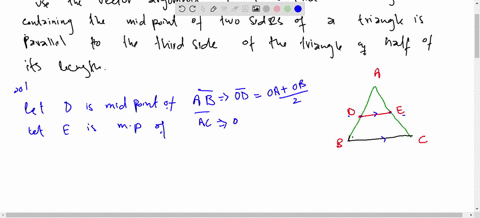 use the vector
containing the mid point of two sides of a triangle is
Parallel to the third side of the triangle & half of
its length.
sol
Let D is mid point of AB => OD = OA + OB / 2
Let E is m.p of AC => O
A
D
E
B
C